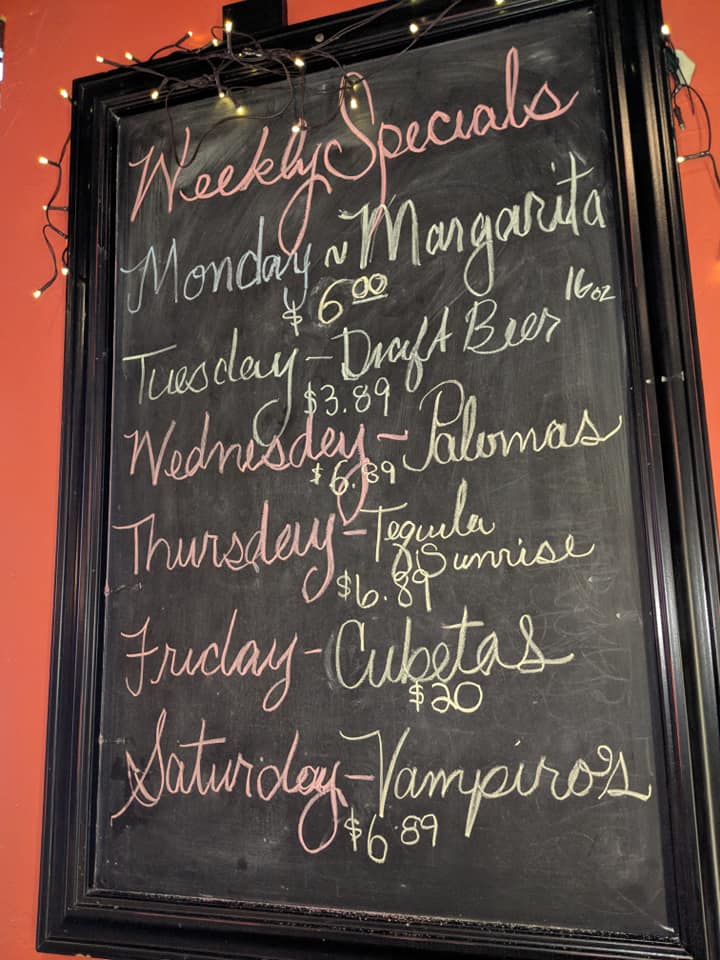 Weekly Specials
Monday ~ Margarita
$6.00
Tuesday - Draft Beer 16oz
$3.89
Wednesday - Palomas
$6.89
Thursday - Tequila
Sunrise
$6.89
Friday - Cubetas
$20
Saturday - Vampiro's
$6.89